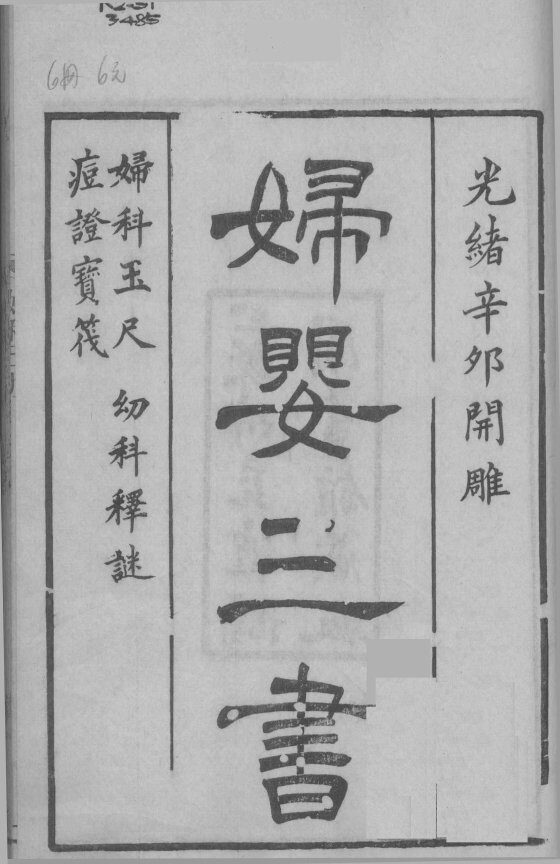 光緒辛卯開雕
婦嬰三書
婦科玉尺　幼科釋謎
痘證寶筏
6冊 6元
3485